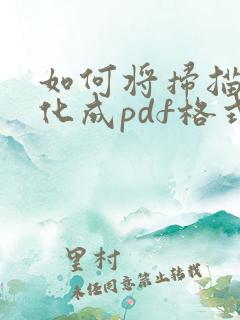 如何将扫描
化成pdf格式
里村
未经同意禁止转载